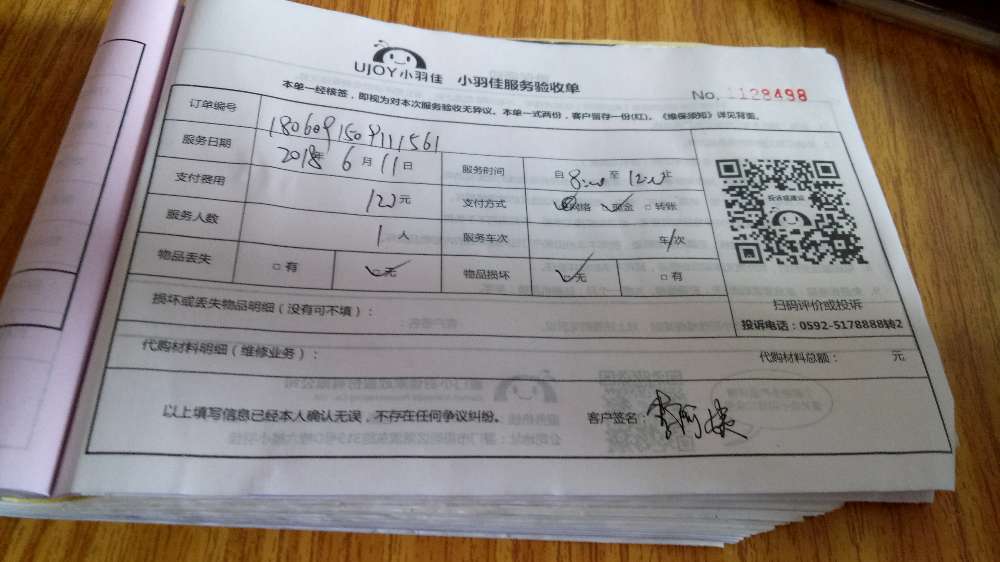 UJOY小羽佳 小羽佳服务验收单
No. 1128498
本单一经核签，即视为对本次服务验收无异议。本单一式两份，客户留存一份(红)。《维保须知》详见背面。
订单编号 180609150911561
服务日期 2018年 6月11日 服务时间 自 8:00 至 12:00 止
支付费用 120元 支付方式 网络 现金 □转账
服务人数 1人 服务车次 车/次
物品丢失 □有 ☑无 物品损坏 ☑无 □有
投诉或建议
扫码评价或投诉
投诉电话：0592-5178888转2
损坏或丢失物品明细（没有可不填）：
代购材料明细（维修业务）： 代购材料总额： 元
以上填写信息已经本人确认无误，不存在任何争议纠纷。 客户签名: